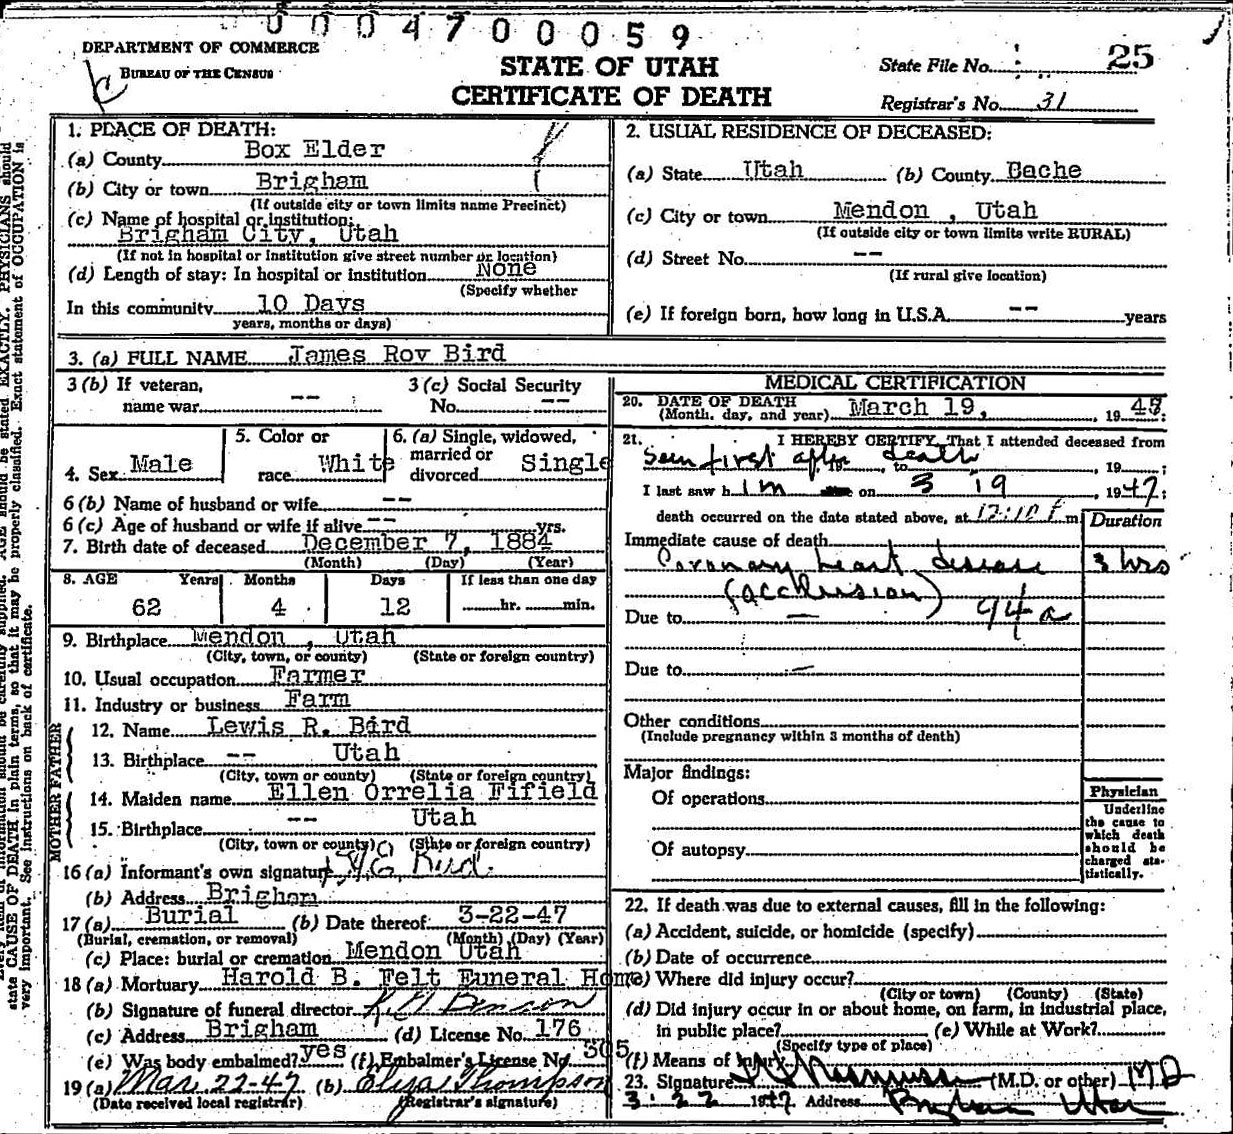 0004700059
DEPARTMENT OF COMMERCE
BUREAU OF THE CENSUS
STATE OF UTAH
CERTIFICATE OF DEATH
State File No. 25
Registrar's No. 31
1. PLACE OF DEATH:
(a) County Box Elder
(b) City or town Brigham
(If outside city or town limits name Precinct)
(c) Name of hospital or institution:
Brigham City, Utah
(If not in hospital or institution give street number or location)
(d) Length of stay: In hospital or institution None
(Specify whether
In this community 10 Days
years, months or days)
2. USUAL RESIDENCE OF DECEASED:
(a) State Utah (b) County Cache
(c) City or town Mendon , Utah
(If outside city or town limits write RURAL)
(d) Street No. --
(If rural give location)
(e) If foreign born, how long in U.S.A. -- years
3. (a) FULL NAME James Roy Bird
3 (b) If veteran,
name war --
3 (c) Social Security
No. --
4. Sex Male
5. Color or
race White
6. (a) Single, widowed,
married or
divorced Single
6 (b) Name of husband or wife --
6 (c) Age of husband or wife if alive -- yrs.
7. Birth date of deceased December 7, 1884
(Month) (Day) (Year)
8. AGE Years Months Days If less than one day
62 4 12 hr. min.
9. Birthplace Mendon , Utah
(City, town, or county) (State or foreign country)
10. Usual occupation Farmer
11. Industry or business Farm
FATHER
12. Name Lewis R. Bird
13. Birthplace -- Utah
(City, town or county) (State or foreign country)
MOTHER
14. Maiden name Ellen Orrelia Fifield
15. Birthplace -- Utah
(City, town or county) (State or foreign country)
16 (a) Informant's own signature Bird.
(b) Address Brigham
17 (a) Burial (b) Date thereof 3-22-47
(Burial, cremation, or removal) (Month) (Day) (Year)
(c) Place: burial or cremation Mendon Utah
18 (a) Mortuary Harold B. Felt Funeral Home
(b) Signature of funeral director
(c) Address Brigham (d) License No. 176
(e) Was body embalmed? yes (f) Embalmer's License No. 305
19 (a) Mar. 22-47 (b) Eliza Thompson
(Date received local registrar) (Registrar's signature)
MEDICAL CERTIFICATION
20. DATE OF DEATH
(Month, day, and year) March 19, 1947;
21. I HEREBY CERTIFY, That I attended deceased from
Seen first after death, 19 , to , 19 ;
I last saw him on 3 19 , 1947;
death occurred on the date stated above, at 12:10 P m
Duration
Immediate cause of death
Coronary heart disease 3 hrs
(occlusion) 94a
Due to —
Due to —
Other conditions
(Include pregnancy within 3 months of death)
Major findings:
Of operations
Of autopsy
Physician
Underline
the cause to
which death
should be
charged sta-
tistically.
22. If death was due to external causes, fill in the following:
(a) Accident, suicide, or homicide (specify)
(b) Date of occurrence
(c) Where did injury occur?
(City or town) (County) (State)
(d) Did injury occur in or about home, on farm, in industrial place,
in public place? (e) While at Work?
(Specify type of place)
(f) Means of injury
23. Signature (M.D. or other) MD
3-22 1947 Address Brigham Utah
state CAUSE OF DEATH in plain terms, so that it may be properly classified. Exact statement of OCCUPATION is
very important. See instructions on back of certificate.